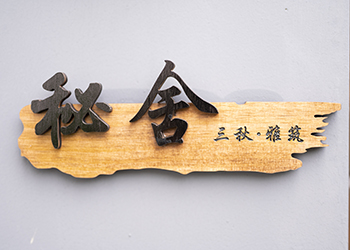 秘舍
三秋·雅筑